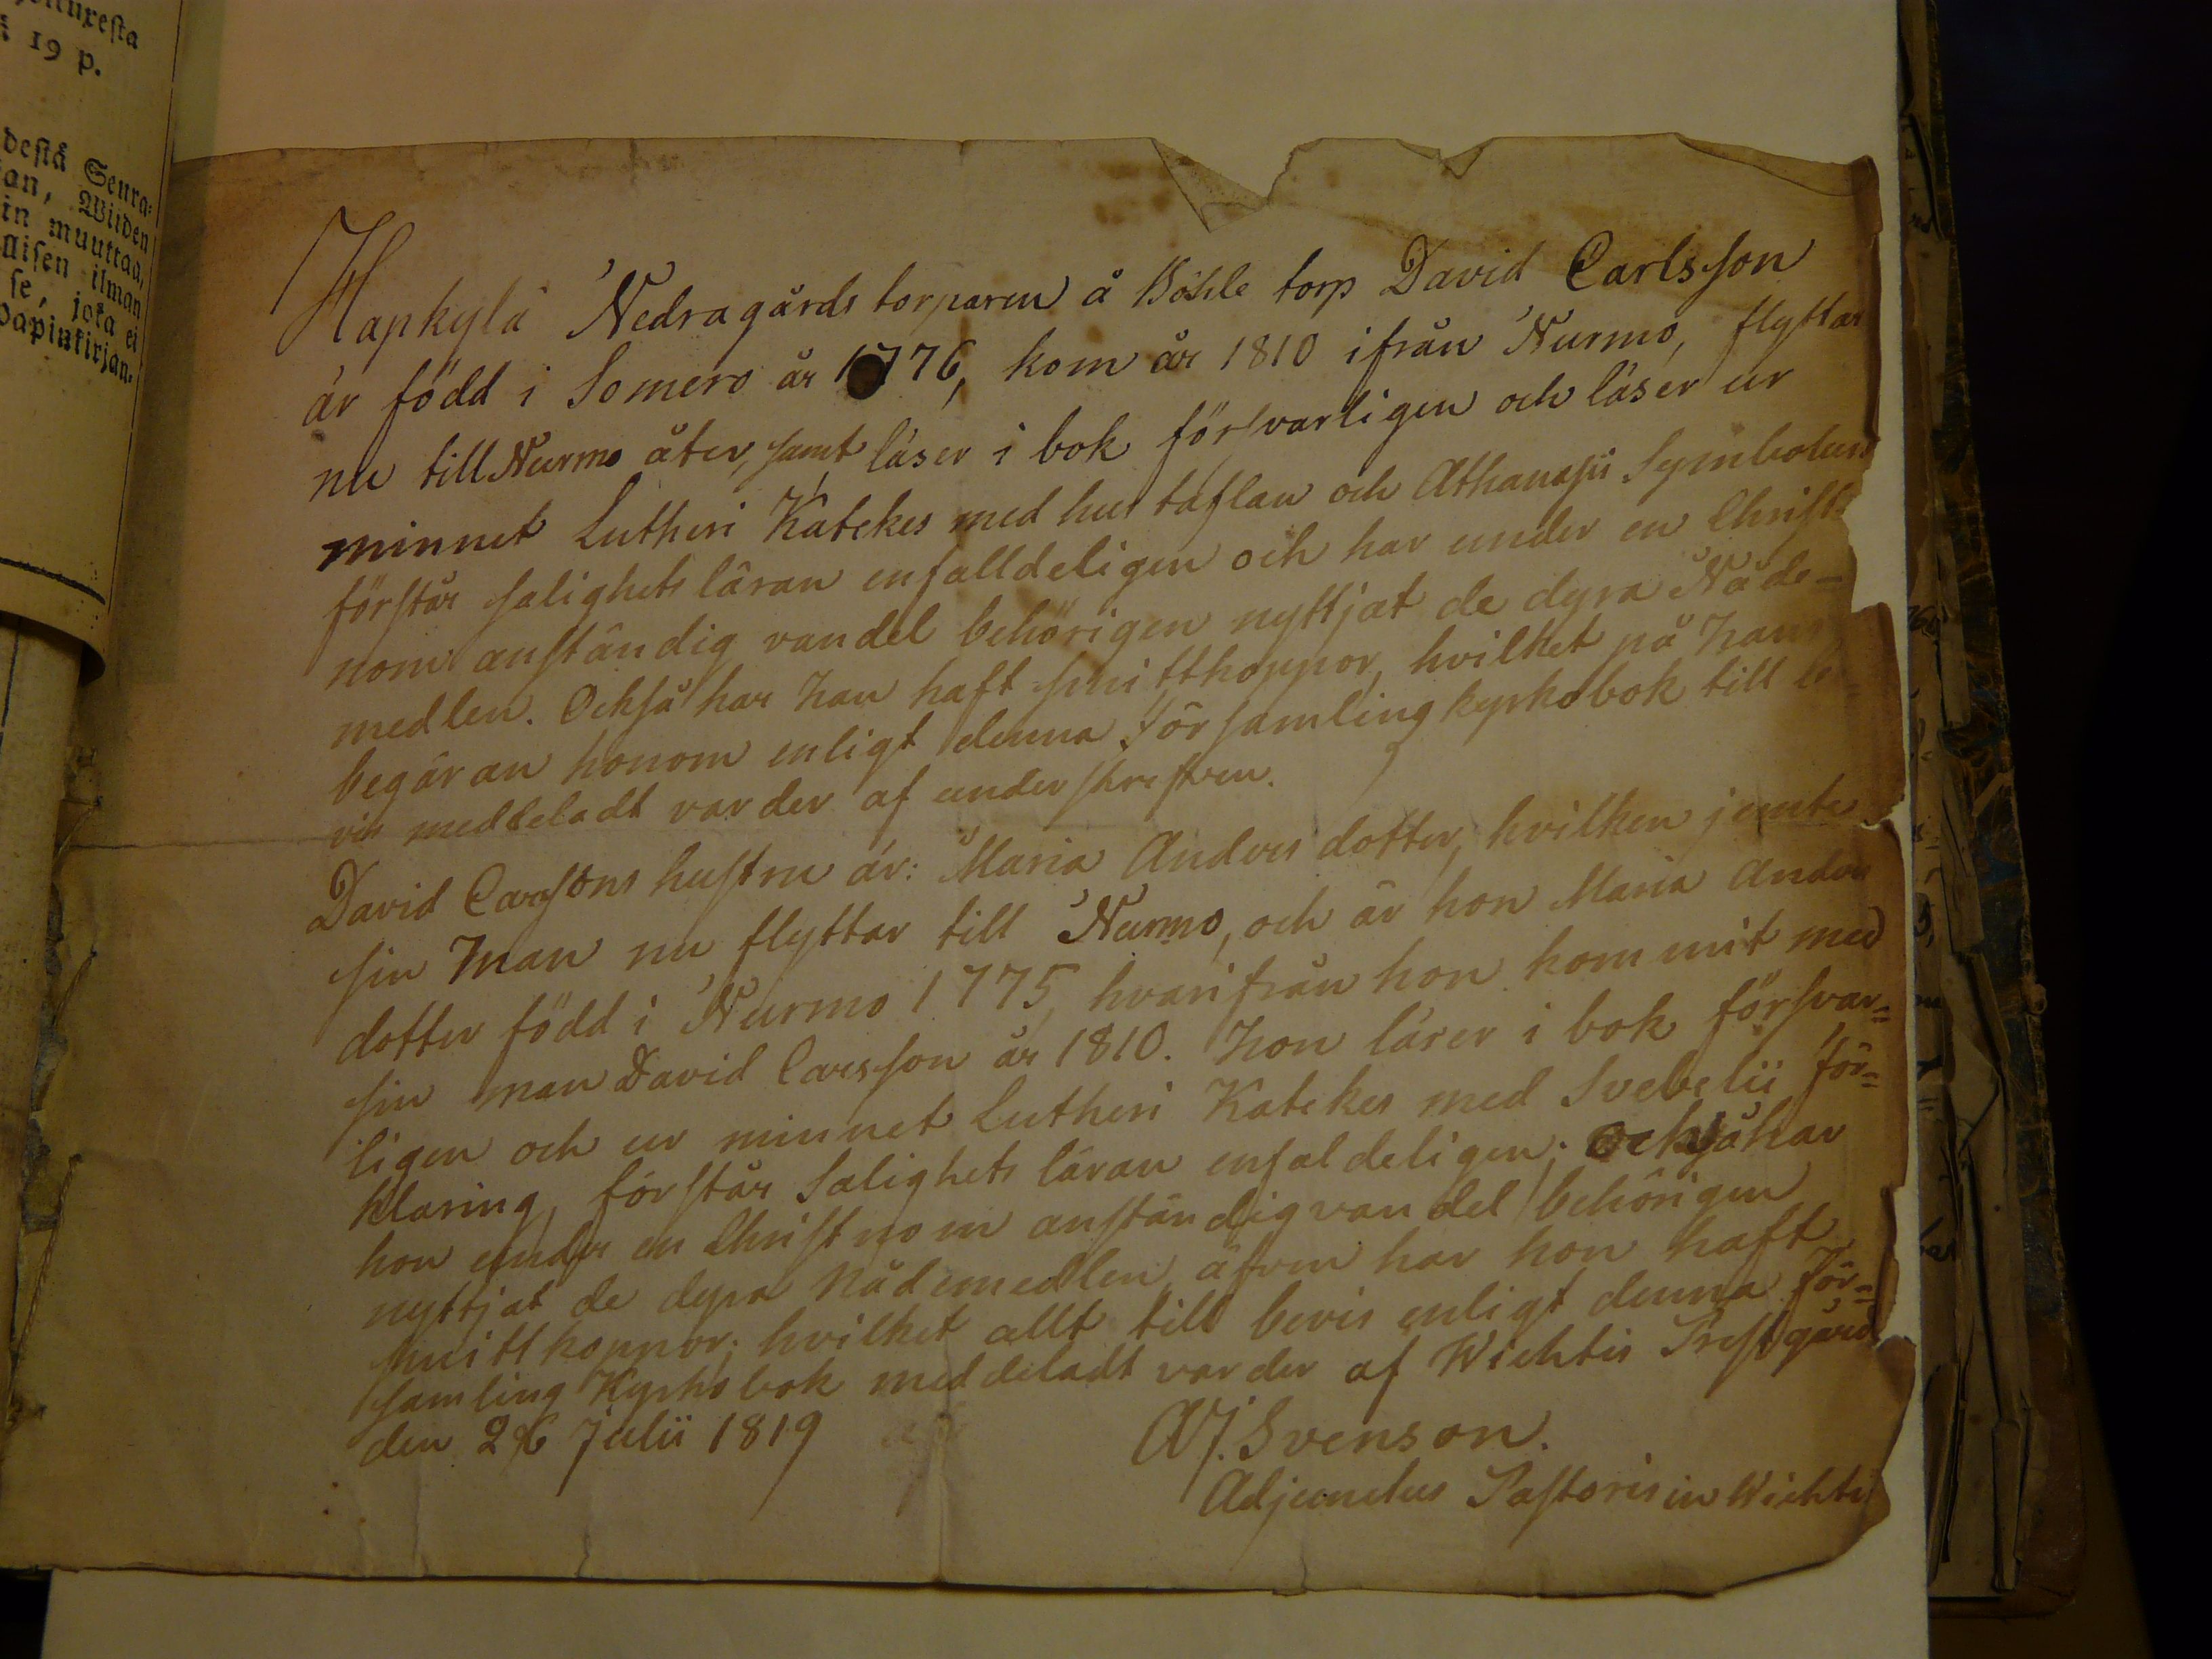 onuresta
19 p.
destå Seura-
an, Wiiden
in muuttaa,
llisen ilman
se, joka ei
Papinkirjan-
Hapkylä Nedragårds torparen å Böhle torp David Carlsson
är född i Somero år 1776, kom år 1810 ifrån Nurmo, flyttar
nu till Nurmo åter, samt läser i bok försvarligen och läser ur
minnet Lutheri Katekes med hus taflan och Athanasii Symbolum
förstår salighets läran enfalldeligen och har under en Christ-
nom anständig vandel behörigen nyttjat de dyra Nåde-
medlen. Också har han haft smittkoppor, hvilket på hans
begäran honom enligt denna Församling kyrkobok till be-
vis meddeladt varder af underskrifven.
David Carssons hustru är: Maria Anders dotter, hvilken jemte
sin man nu flyttar till Nurmo, och är hon Maria Anders
dotter född i Nurmo 1775, hvarifrån hon kommit med
sin man David Carsson år 1810. Hon läser i bok försvar=
ligen och ur minnet Lutheri Katekes med Svebelii för=
klaring, förstår Salighets läran enfaldeligen; också har
hon under en Christnom anständig vandel behörigen
nyttjat de dyra Nådemedlen, äfven har hon haft
smittkoppor; hvilket allt till bevis enligt denna För=
samling Kyrkobok meddeladt varder af Wichtis Prestgård
den 26 Julii 1819
AJ. Svenson.
Adjunctus Pastoris in Wichtis